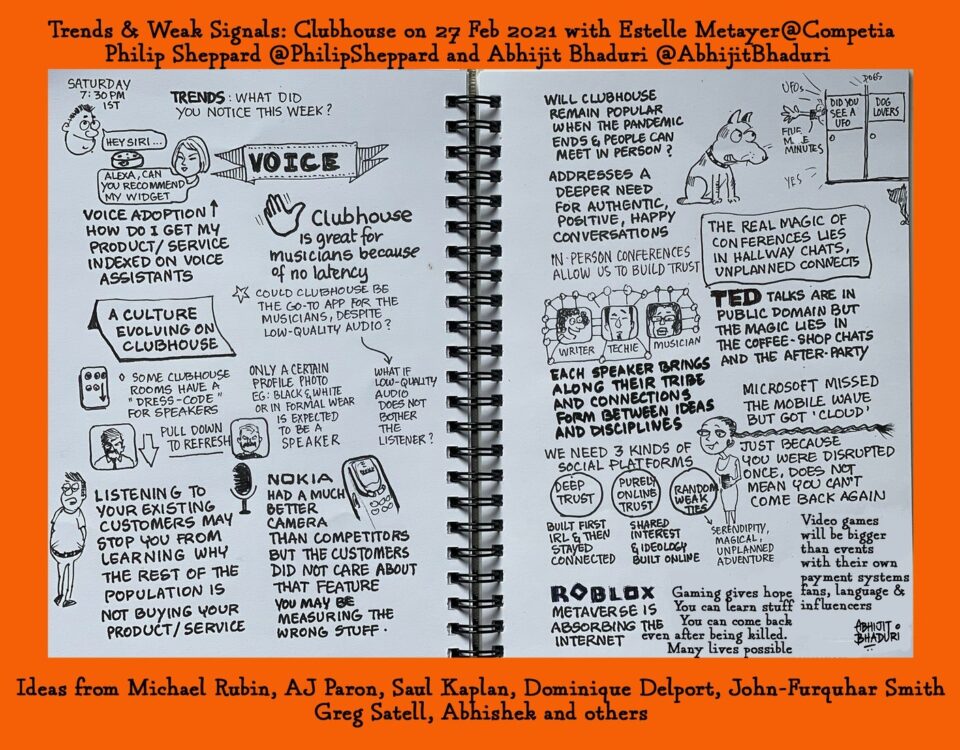 Trends & Weak Signals: Clubhouse on 27 Feb 2021 with Estelle Metayer@Competia
Philip Sheppard @PhilipSheppard and Abhijit Bhaduri @AbhijitBhaduri
SATURDAY
7:30 PM
IST
TRENDS: WHAT DID
YOU NOTICE THIS WEEK?
HEY SIRI ...
ALEXA, CAN
YOU RECOMMEND
MY WIDGET
VOICE
VOICE ADOPTION ↑
HOW DO I GET MY
PRODUCT/ SERVICE
INDEXED ON VOICE
ASSISTANTS
Clubhouse
is great for
musicians because
of no latency
☆ COULD CLUBHOUSE BE
THE GO-TO APP FOR THE
MUSICIANS, DESPITE
LOW-QUALITY AUDIO?
A CULTURE
EVOLVING ON
CLUBHOUSE
SOME CLUBHOUSE
ROOMS HAVE A
"DRESS-CODE"
FOR SPEAKERS
ONLY A CERTAIN
PROFILE PHOTO
EG: BLACK & WHITE
OR IN FORMAL WEAR
IS EXPECTED
TO BE A
SPEAKER
WHAT IF
LOW-QUALITY
AUDIO
DOES NOT
BOTHER
THE
LISTENER?
PULL DOWN
TO REFRESH
LISTENING TO
YOUR EXISTING
CUSTOMERS MAY
STOP YOU FROM
LEARNING WHY
THE REST OF THE
POPULATION IS
NOT BUYING YOUR
PRODUCT/SERVICE
NOKIA
HAD A MUCH
BETTER
CAMERA
THAN COMPETITORS
BUT THE CUSTOMERS
DID NOT CARE ABOUT
THAT FEATURE
YOU MAY BE
MEASURING THE
WRONG STUFF.
WILL CLUBHOUSE
REMAIN POPULAR
WHEN THE PANDEMIC
ENDS & PEOPLE CAN
MEET IN PERSON?
ADDRESSES A
DEEPER NEED
FOR AUTHENTIC,
POSITIVE, HAPPY
CONVERSATIONS
IN-PERSON CONFERENCES
ALLOW US TO BUILD TRUST
UFOs
DOGS
DID YOU
SEE A
UFO
DOG
LOVERS
FIVE
MINUTES
YES
THE REAL MAGIC OF
CONFERENCES LIES
IN HALLWAY CHATS,
UNPLANNED CONNECTS
WRITER
TECHIE
MUSICIAN
TED TALKS ARE IN
PUBLIC DOMAIN BUT
THE MAGIC LIES IN
THE COFFEE-SHOP CHATS
AND THE AFTER-PARTY
EACH SPEAKER BRINGS
ALONG THEIR TRIBE
AND CONNECTIONS
FORM BETWEEN IDEAS
AND DISCIPLINES
MICROSOFT MISSED
THE MOBILE WAVE
BUT GOT 'CLOUD'
JUST BECAUSE
YOU WERE DISRUPTED
ONCE, DOES NOT
MEAN YOU CAN'T
COME BACK AGAIN
WE NEED 3 KINDS OF
SOCIAL PLATFORMS
DEEP
TRUST
PURELY
ONLINE
TRUST
RANDOM
WEAK
TIES
BUILT FIRST
IRL & THEN
STAYED
CONNECTED
SHARED
INTEREST
& IDEOLOGY
BUILT ONLINE
SERENDIPITY,
MAGICAL,
UNPLANNED
ADVENTURE
Video games
will be bigger
than events
with their own
payment systems
fans, language &
influencers
ROBLOX
METAVERSE IS
ABSORBING THE
INTERNET
Gaming gives hope
You can learn stuff
You can come back
even after being killed.
Many lives possible
ABHIJIT
BHADURI
Ideas from Michael Rubin, AJ Paron, Saul Kaplan, Dominique Delport, John-Furquhar Smith
Greg Satell, Abhishek and others